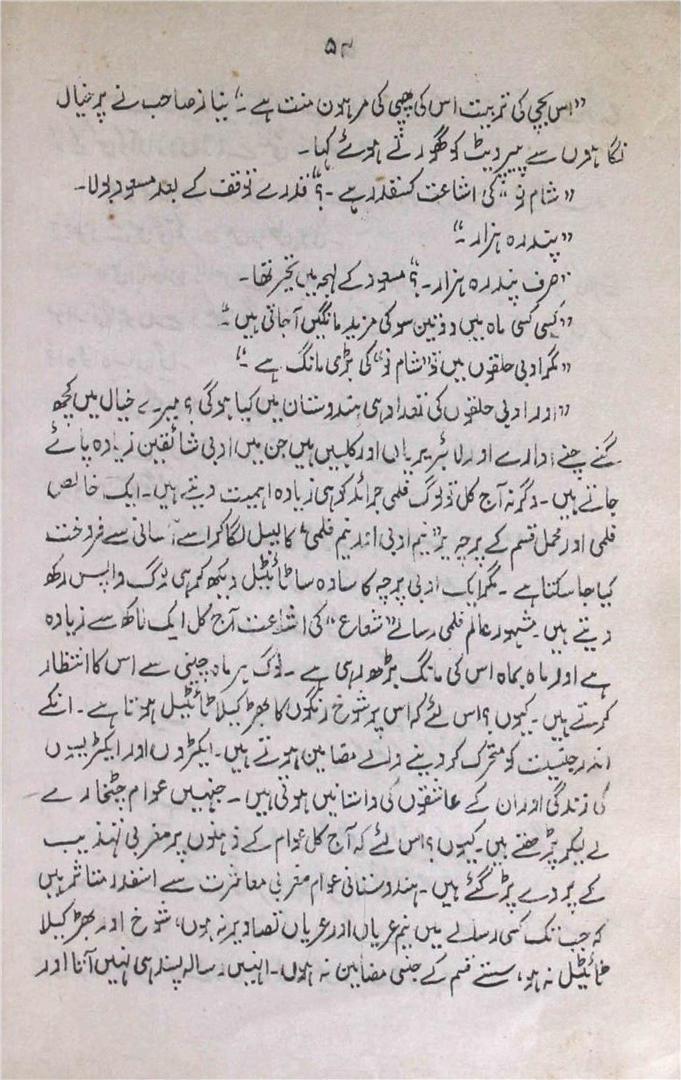 ۵۴
”اس بچی کی تربیت اس کی چچی کی مرہون منت ہے ۔“ نیاز صاحب نے پُر خیال
نگاہوں سے پیپر ویٹ کو گھورتے ہوئے کہا۔
”شام نو“ کی اشاعت کسقدر ہے ۔؟“ قدرے توقف کے بعد مسعود بولا۔
”پندرہ ہزار ۔“
”صرف پندرہ ہزار ۔؟“ مسعود کے لہجہ میں تحیر تھا۔
”کسی کسی ماہ میں دو تین سو کی مزید مانگیں آجاتی ہیں ۔“
”مگر ادبی حلقوں میں تو ”شام نو“ کی بڑی مانگ ہے ۔“
”اور ادبی حلقوں کی تعداد ہی ہندوستان میں کیا ہوگی ؟ میرے خیال میں کچھ
گنے چنے ادارے اور لائبریریاں اور کلبیں ہیں جن میں ادبی شائقین زیادہ پائے
جاتے ہیں ۔ وگرنہ آج کل تو لوگ فلمی جرائد کو ہی زیادہ اہمیت دیتے ہیں ۔ ایک خالص
فلمی اور مہمل قسم کے پرچہ پر ”نیم ادبی اور نیم فلمی“ کا لیبل لگا کر اسے آسانی سے فروخت
کیا جا سکتا ہے ۔ مگر ایک ادبی پرچہ کا سادہ سا ٹائیٹل دیکھ کر ہی لوگ واپس رکھ
دیتے ہیں ۔ مشہور عالم فلمی رسالے ”شعاع“ کی اشاعت آج کل ایک لاکھ سے زیادہ
ہے اور ماہ بماہ اس کی مانگ بڑھ رہی ہے ۔ لوگ ہر ماہ بے چینی سے اس کا انتظار
کرتے ہیں ۔ کیوں ؟ اس لئے کہ اس پر شوخ رنگوں کا بھڑکیلا ٹائیٹل ہوتا ہے ۔ انکے
اندر جنسیت کو متحرک کر دینے والے مضامین ہوتے ہیں ۔ ایکٹروں اور ایکٹریسوں
کی زندگی اور ان کے عاشقوں کی داستانیں ہوتی ہیں ۔ جنہیں عوام چٹخارے
لے لیکر پڑھتے ہیں ۔ کیوں ؟ اس لئے کہ آج کل عوام کے ذہنوں پر مغربی تہذیب
کے پردے پڑ گئے ہیں ۔ ہندوستانی عوام مغربی معاشرت سے اسقدر متاثر ہیں
کہ جب تک کسی رسالے میں نیم عریاں اور عریاں تصاویر نہ ہوں، شوخ اور بھڑکیلا
ٹائیٹل نہ ہو ، سستے قسم کے جنسی مضامین نہ ہوں ۔ انہیں رسالہ پسند ہی نہیں آتا اور